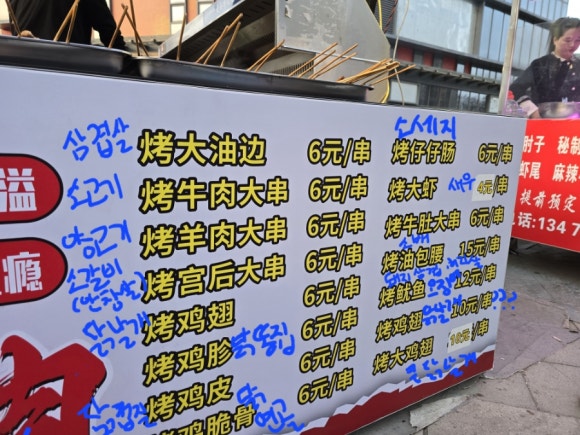 溢
瘾
삼겹살 烤大油边 6元/串
소고기 烤牛肉大串 6元/串
양고기 烤羊肉大串 6元/串
소갈비 烤宫后大串 6元/串
(안창살)
닭날개 烤鸡翅 6元/串
烤鸡胗 닭똥집 6元/串
烤鸡皮 6元/串
烤鸡脆骨 6元/串
소세지
烤仔仔肠 6元/串
烤大虾 새우 4元/串
烤牛肚大串 6元/串
烤油包腰 15元/串
烤鱿鱼 오징어 12元/串
烤鸡翅 10元/串
烤大鸡翅 10元/串
큰 닭날개
肘子 秘制
虾尾 麻辣
提前预定
话:134 7